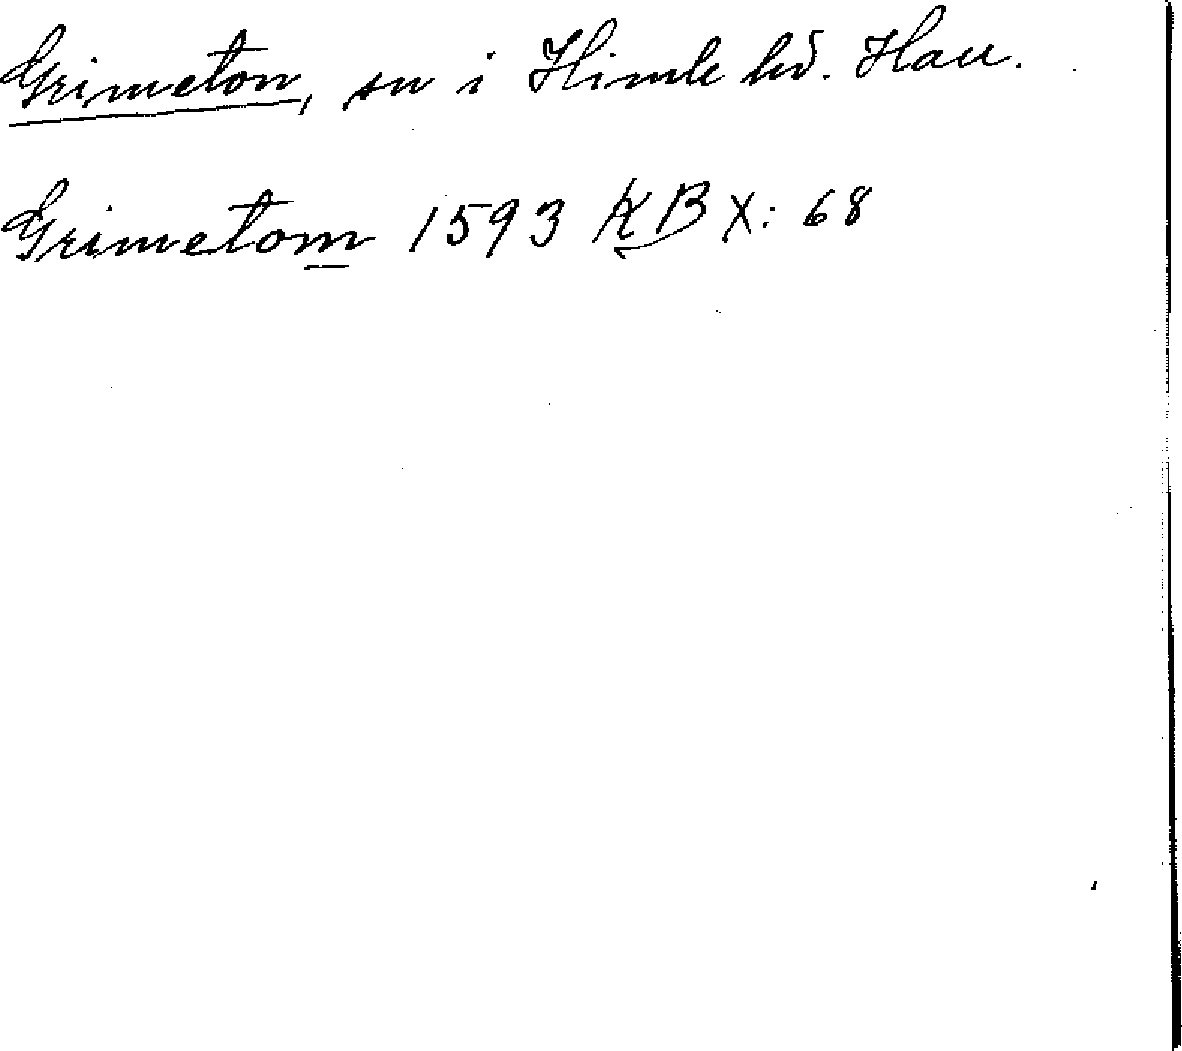 Grimeton, sn i Himle hd. Hall.
Grimetom 1593 KB X: 68